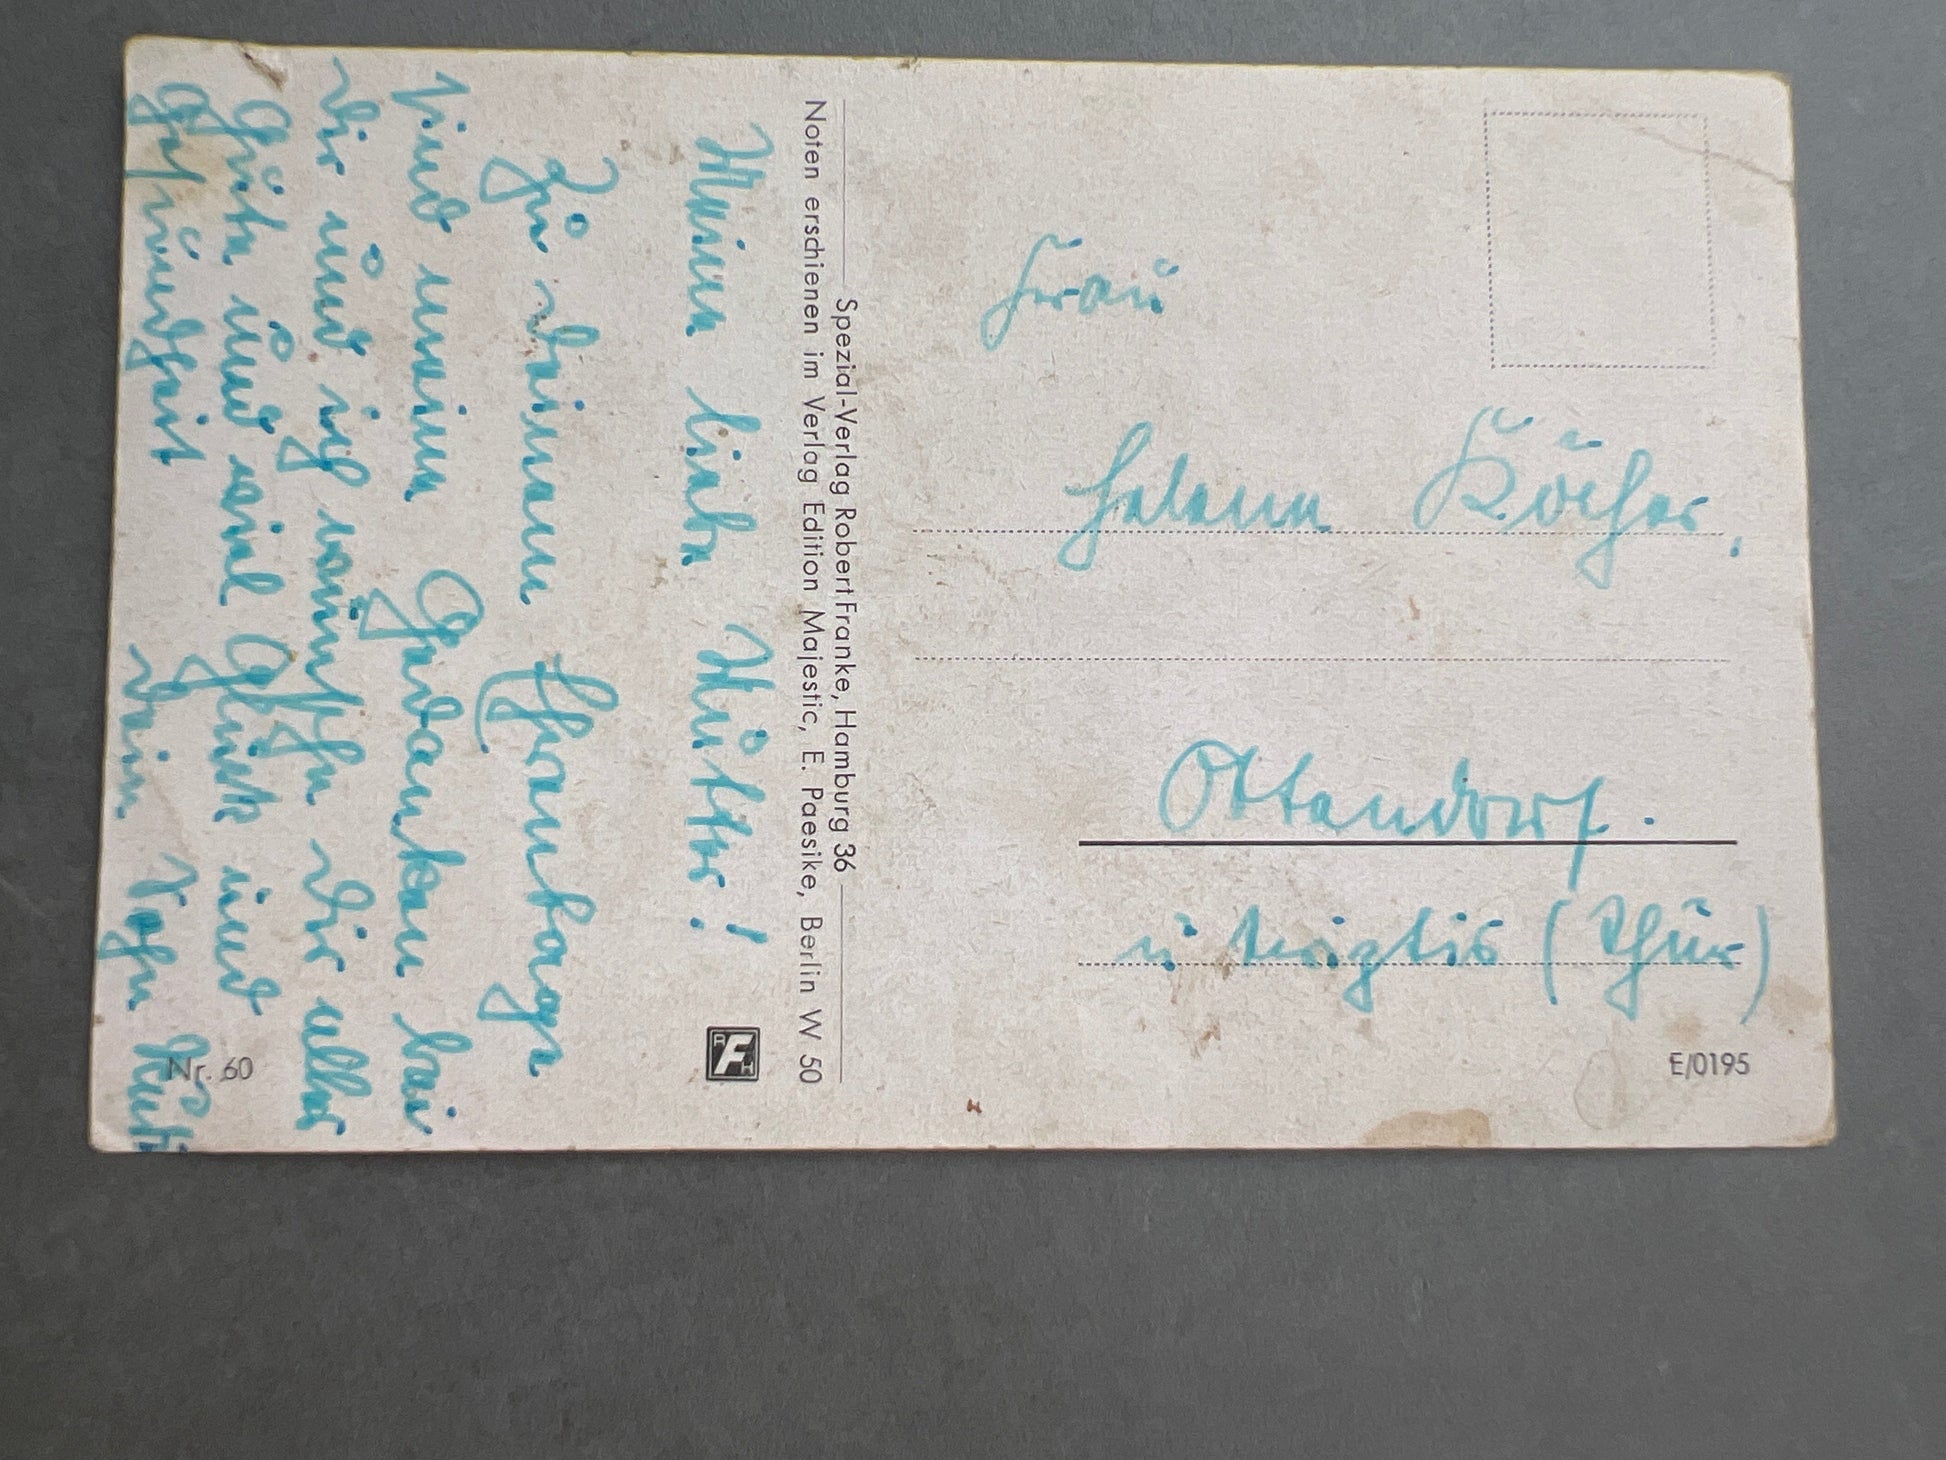 Meine liebe Mutter!
Zu deinem Ehrentage
sind meine Gedanken bei
Dir und ich wünsche Dir alles
Gute und viel Glück und
Gesundheit
Dein Sohn Kurt
Nr. 60
Noten erschienen im Verlag Edition Majestic, E. Paesike, Berlin W 50
Spezial-Verlag Robert Franke, Hamburg 36
RFH
Frau
Helene Köcher,
Ottendorf.
ü Triptis (Thür)
E/0195